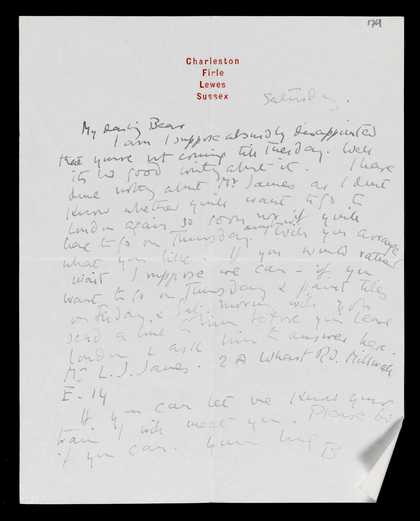 179
Charleston
Firle
Lewes
Sussex
Saturday.
My darling Bear
I am I suppose absurdly disappointed
that you're not coming till Tuesday. Well
it's no good about it. I have
done nothing about Mr James as I don't
know whether you'll want to go to
London again so soon nor if you'll
have to go on Thursday. Will you arrange
what you like. If you would rather
wait I suppose we can - if you
want to go on Thursday & paint tiles
on Friday & Sat. morning will you
send a line to him before you leave
London & ask him to answer here.
Mr L. J. James. 2 A Wharf Rd. Millwall
E. 14
If you can let me know your
train I will meet you. Please do
if you can. Your